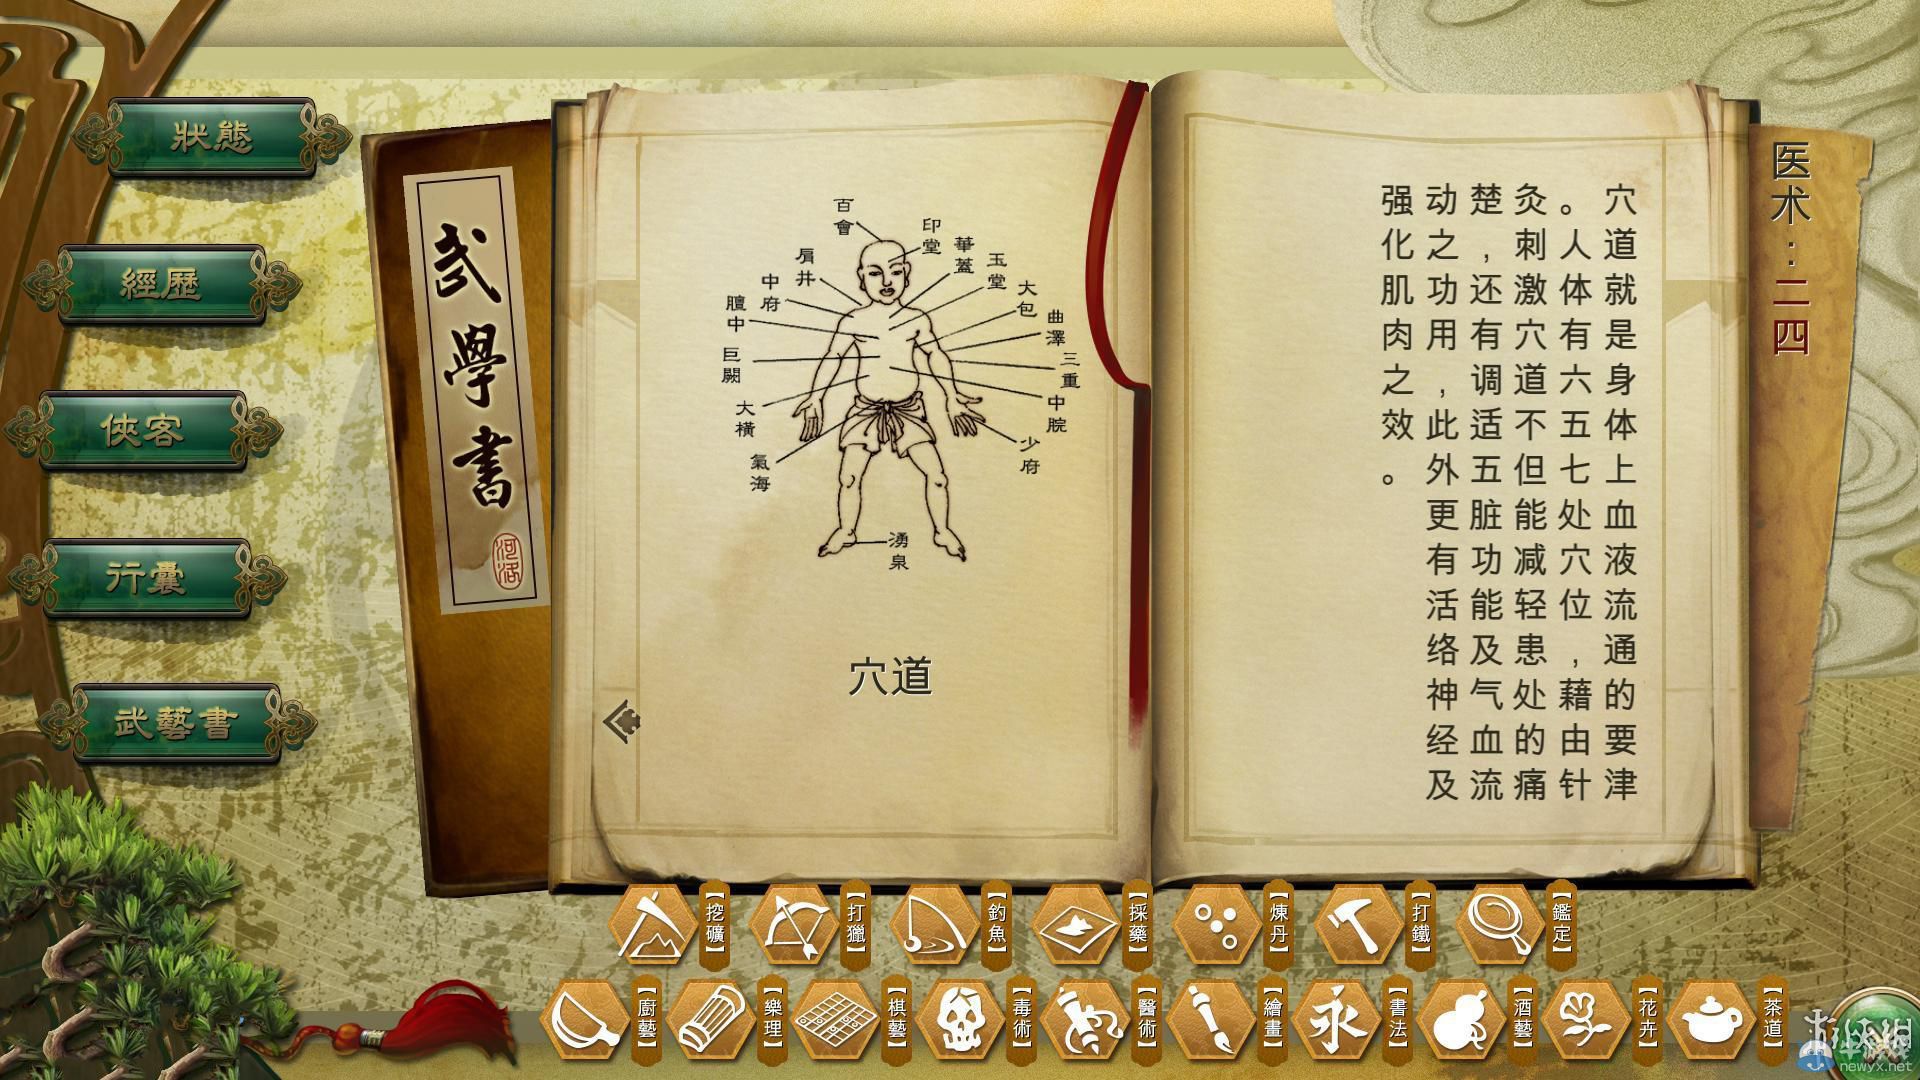 狀態
經歷
俠客
行囊
武藝書
武學書
河洛
百會
印堂
華蓋
玉堂
大包
曲澤
三重
中脘
少府
肩井
中府
膻中
巨闕
大橫
氣海
湧泉
穴道
医术：二四
穴道就是身体上血液流通的要津
。人体有六五七处穴位，藉由针
灸刺激穴道不但能减轻患处的痛
楚，还有调适五脏功能及气血流
动之功用，此外更有活络神经及
强化肌肉之效。
【挖礦】
【打獵】
【釣魚】
【採藥】
【煉丹】
【打鐵】
【鑑定】
【廚藝】
【樂理】
【棋藝】
【毒術】
【醫術】
【繪畫】
永
【書法】
【酒藝】
【花卉】
【茶道】
newyx.net